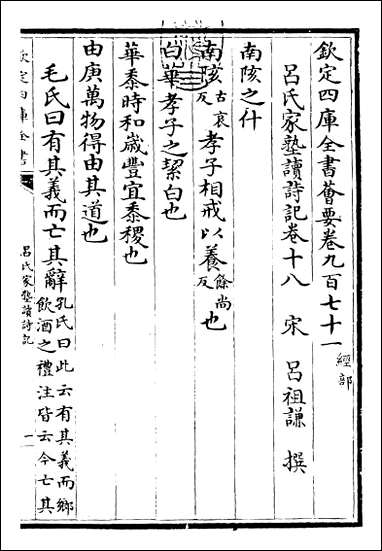 欽定四庫全書薈要卷九百七十一 經部
呂氏家塾讀詩記卷十八 宋 呂祖謙 撰
南陔之什
南陔古哀反孝子相戒以養餘尚反也
白華孝子之潔白也
華黍時和歲豐宜黍稷也
由庚萬物得由其道也
毛氏曰有其義而亡其辭孔氏曰此云有其義而鄉
飲酒之禮注皆云今亡其
欽定四庫全書
呂氏家塾讀詩記
一